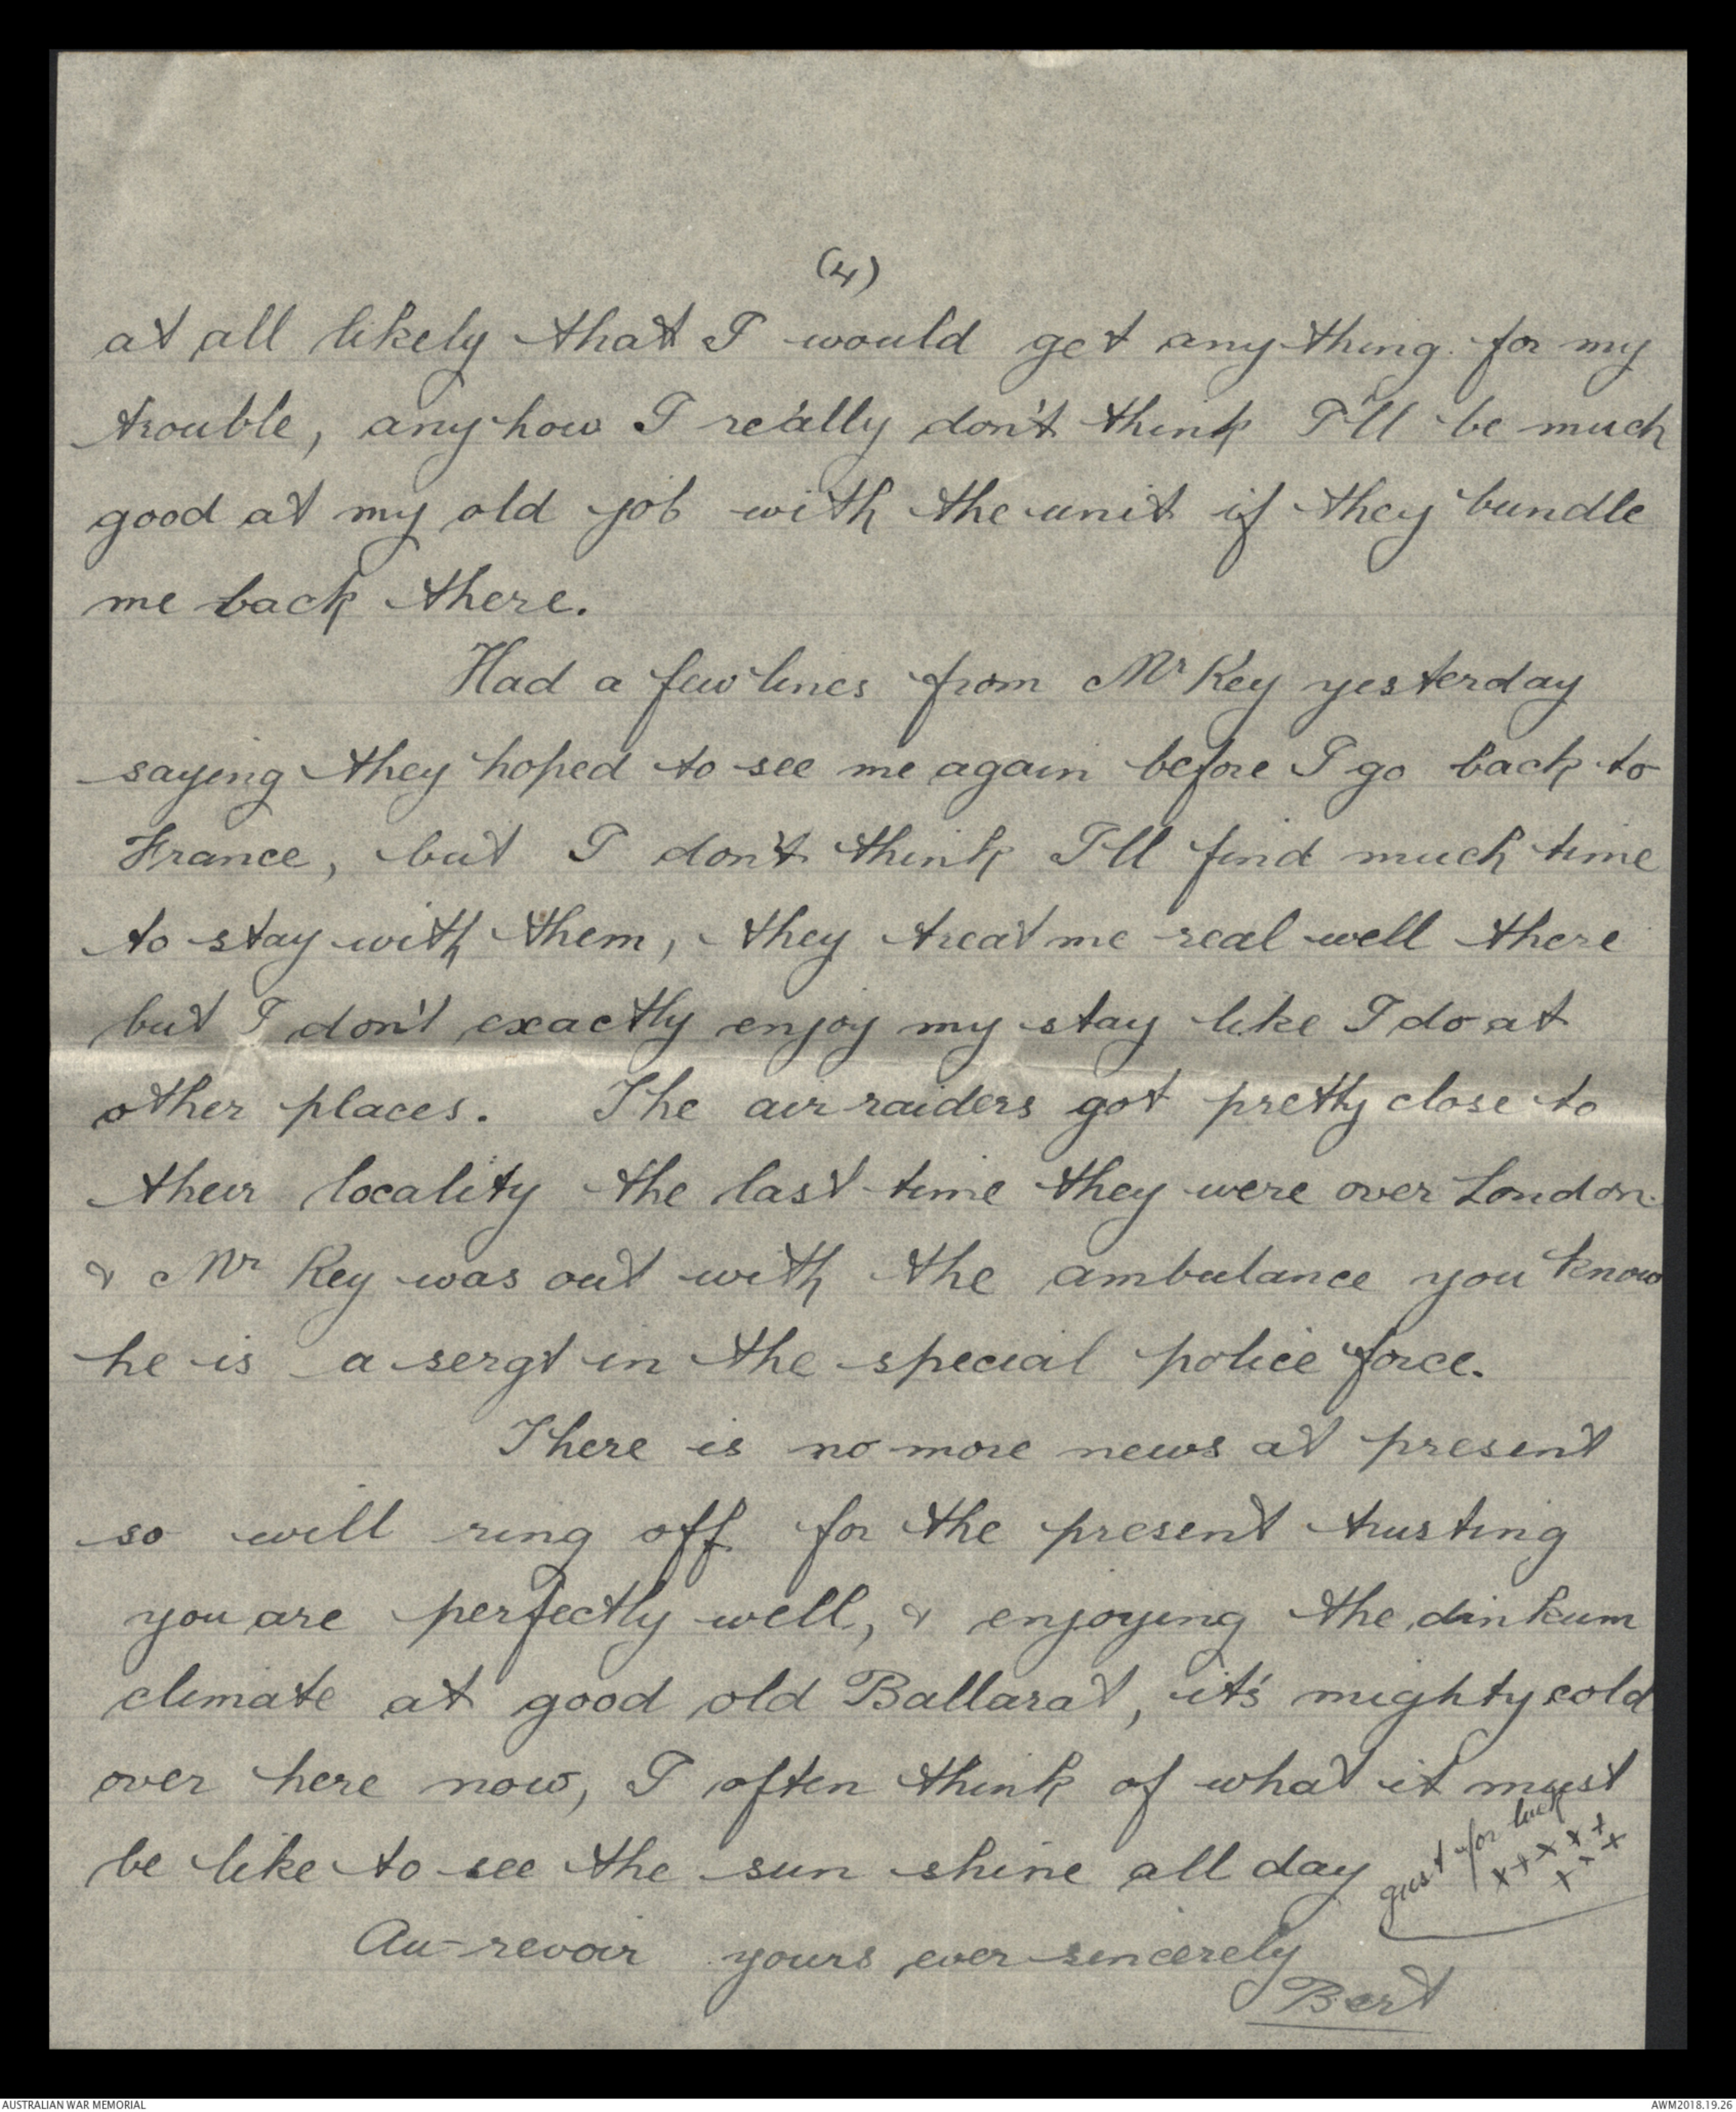 (4)
at all likely that I would get anything for my
trouble, anyhow I really don't think I'll be much
good at my old job with the unit if they bundle
me back there.
Had a few lines from Mr Key yesterday
saying they hoped to see me again before I go back to
France, but I don't think I'll find much time
to stay with them, they treat me real well there
but I don't exactly enjoy my stay like I do at
other places. The air raiders got pretty close to
their locality the last time they were over London
& Mr Key was out with the ambulance you know
he is a sergt in the special police force.
There is no more news at present
so will ring off for the present trusting
you are perfectly well, & enjoying the dinkum
climate at good old Ballarat, it's mighty cold
over here now, I often think of what it must
be like to see the sun shine all day
just for luck
x x x x x x
x x x
Au-revoir yours ever sincerely
Bert
AUSTRALIAN WAR MEMORIAL
AWM2018.19.26